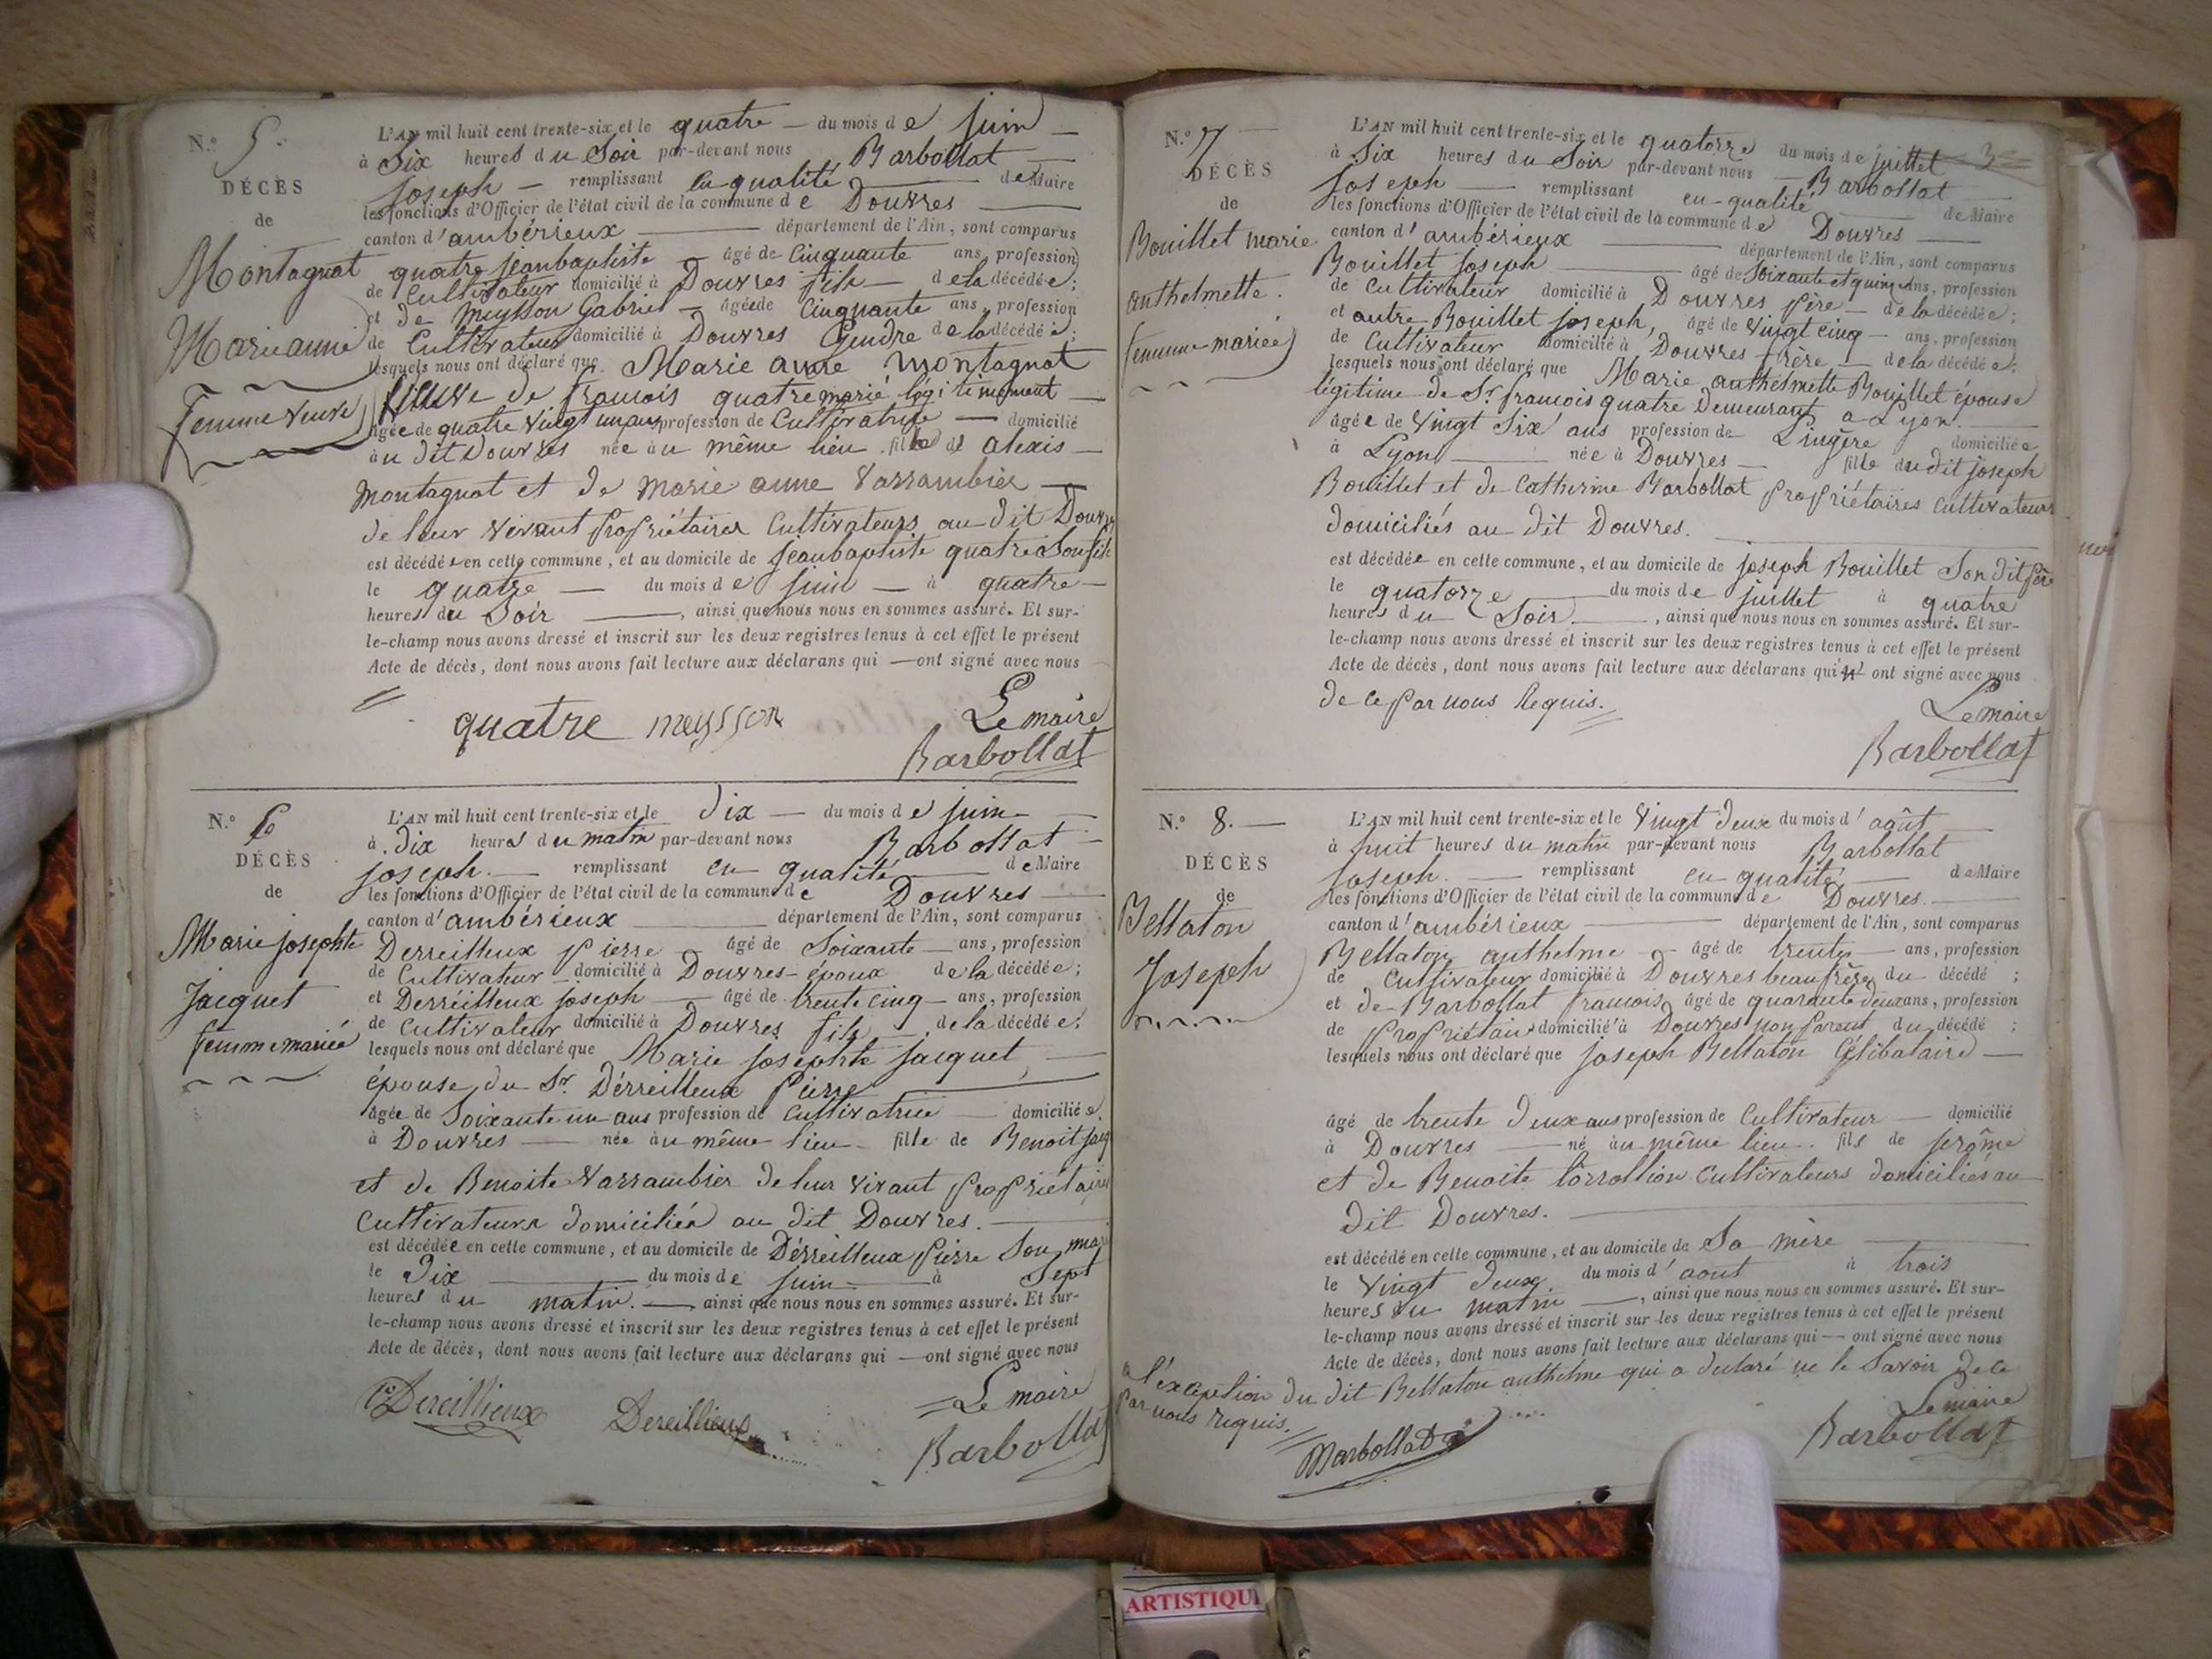 N.º 5.
DÉCÈS
de
Montagnat
Marie anne
femme veuve
L'AN mil huit cent trente-six et le quatre — du mois de juin —
à Six heures du Soir par-devant nous Barbollat —
joseph — remplissant en qualité — de Maire
les fonctions d'Officier de l'état civil de la commune de Douvres —
canton d'ambérieux — département de l'Ain, sont comparus
quatre jeanbaptiste — âgé de Cinquante ans, profession
de Cultivateur domicilié à Douvres fils — de la décédée;
et de meysson Gabriel — âgée de Cinquante ans, profession
de Cultivateur domicilié à Douvres Gendre de la décédée;
lesquels nous ont déclaré que Marie anne montagnat
veuve de francois quatre marié légitimement —
âgée de quatre vingt un ans profession de Cultivatrice — domicilié
au dit Douvres née au même lieu fille de alexis —
montagnat et de marie anne Varrambier —
de leur vivant propriétaires Cultivateurs au dit Douvres
est décédée en cette commune, et au domicile de jeanbaptiste quatre Son fils
le quatre — du mois de juin — à quatre —
heures du Soir —, ainsi que nous nous en sommes assuré. Et sur-
le-champ nous avons dressé et inscrit sur les deux registres tenus à cet effet le présent
Acte de décès, dont nous avons fait lecture aux déclarans qui — ont signé avec nous
quatre meysson Le maire
Barbollat
N.º 6
DÉCÈS
de
Marie josephte
jacquet
femme mariée
L'AN mil huit cent trente-six et le dix — du mois de juin —
à dix heures du matin par-devant nous Barbollat —
joseph. — remplissant en qualité — de Maire
les fonctions d'Officier de l'état civil de la commune de Douvres —
canton d'ambérieux — département de l'Ain, sont comparus
Derreilleux pierre — âgé de Soixante — ans, profession
de Cultivateur — domicilié à Douvres — époux de la décédée;
et Derreilleux joseph — âgé de trente cinq — ans, profession
de Cultivateur domicilié à Douvres fils — de la décédée;
lesquels nous ont déclaré que Marie josephte jacquet, —
épouse du Sr. Dérreilleux Pierre —
âgée de Soixante un ans profession de Cultivatrice — domiciliée
à Douvres — née au même lieu — fille de Benoit jacq
et de Benoite Varrambier de leur vivant propriétaires
Cultivateurs domiciliés au dit Douvres. —
est décédée en cette commune, et au domicile de Dérreilleux pierre Son mari
le Dix — du mois de juin — à Sept
heures du matin. — ainsi que nous nous en sommes assuré. Et sur-
le-champ nous avons dressé et inscrit sur les deux registres tenus à cet effet le présent
Acte de décès, dont nous avons fait lecture aux déclarans qui — ont signé avec nous
Dereillieux Dereillieux Le maire
Barbollat
3
N.º 7 —
DÉCÈS
de
Bouillet marie
anthelmette.
femme mariée
L'AN mil huit cent trente-six et le quatorze du mois de juillet
à Six heures du Soir par-devant nous — Barbollat —
joseph — remplissant en qualité — de Maire
les fonctions d'Officier de l'état civil de la commune de Douvres —
canton d'ambérieux — département de l'Ain, sont comparus
Bouillet joseph — âgé de Soixante et quinze ans, profession
de Cultivateur domicilié à Douvres père — de la décédée;
et autre Bouillet joseph, âgé de vingt cinq — ans, profession
de Cultivateur domicilié à Douvres — frère — de la décédée;
lesquels nous ont déclaré que Marie anthelmette Bouillet épouse
légitime de Sr. francois quatre Demeurant a Lyon. —
âgée de Vingt Six ans profession de Lingère domiciliée
à Lyon — née à Douvres — fille du dit joseph
Bouillet et de Catherine Barbollat propriétaires Cultivateurs
domiciliés au dit Douvres. —
est décédée en cette commune, et au domicile de joseph Bouillet Son dit père
le quatorze — du mois de juillet à quatre
heures du Soir. —, ainsi que nous nous en sommes assuré. Et sur-
le-champ nous avons dressé et inscrit sur les deux registres tenus à cet effet le présent
Acte de décès, dont nous avons fait lecture aux déclarans qui n' ont signé avec nous
de ce par nous Requis.
Le maire
Barbollat
N.º 8. —
DÉCÈS
de
Bellaton
Joseph
L'AN mil huit cent trente-six et le Vingt deux du mois d'août
à huit heures du matin par-devant nous Barbollat
joseph. — remplissant en qualité, — de Maire
les fonctions d'Officier de l'état civil de la commune de Douvres. —
canton d'ambérieux — département de l'Ain, sont comparus
Bellaton anthelme — âgé de trente — ans, profession
de Cultivateur domicilié à Douvres beaufrère du décédé;
et de Barbollat francois, âgé de quarante deux ans, profession
de propriétaire domicilié à Douvres non parent du décédé;
lesquels nous ont déclaré que joseph Bellaton Célibataire —
âgé de trente deux ans profession de Cultivateur — domicilié
à Douvres — né au même lieu. fils de jerôme
et de Benoite Cultivateurs domiciliés au
dit Douvres. —
est décédé en cette commune, et au domicile de Sa mère —
le Vingt deux du mois d'aout à trois
heures du matin —, ainsi que nous nous en sommes assuré. Et sur-
le-champ nous avons dressé et inscrit sur les deux registres tenus à cet effet le présent
Acte de décès, dont nous avons fait lecture aux déclarans qui — ont signé avec nous
a l'éxception du dit Bellaton anthelme qui a declaré ne le Savoir de ce
par nous requis.
Le maire
Barbollat Barbollat
ARTISTIQU